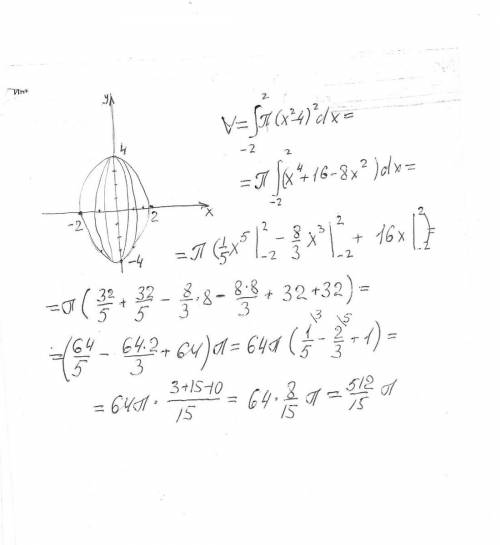 y
4
-2
2
x
-4
V=∫_{-2}^{2} π(x²-4)²dx=
=π∫_{-2}^{2}(x⁴+16-8x²)dx=
=π(1/5 x⁵|_{-2}^{2} - 8/3 x³|_{-2}^{2} + 16x|_{-2}^{2})=
=π(32/5 + 32/5 - 8/3·8 - 8·8/3 + 32+32)=
=(64/5 - 64·2/3 + 64)π = 64π(1/5\3 - 2/3\5 + 1)=
=64π·(3+15-10)/15 = 64·8/15 π = 512/15 π